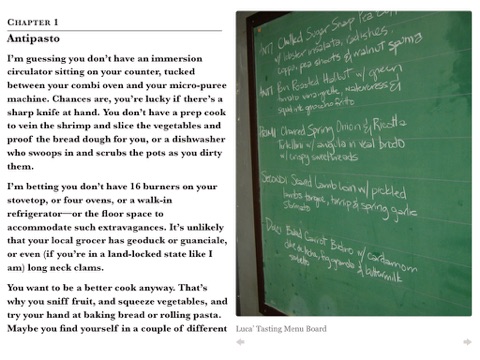 CHAPTER 1
Antipasto
I'm guessing you don't have an immersion
circulator sitting on your counter, tucked
between your combi oven and your micro-puree
machine. Chances are, you're lucky if there's a
sharp knife at hand. You don't have a prep cook
to vein the shrimp and slice the vegetables and
proof the bread dough for you, or a dishwasher
who swoops in and scrubs the pots as you dirty
them.
I'm betting you don't have 16 burners on your
stovetop, or four ovens, or a walk-in
refrigerator—or the floor space to
accommodate such extravagances. It's unlikely
that your local grocer has geoduck or guanciale,
or even (if you're in a land-locked state like I
am) long neck clams.
You want to be a better cook anyway. That's
why you sniff fruit, and squeeze vegetables, and
try your hand at baking bread or rolling pasta.
Maybe you find yourself in a couple of different
Chilled Sugar Snap Pea
w/ lobster insalata, radishes,
pea shoots & walnut
Pan Roasted Halibut w/ green
tomato vinaigrette, watercress &
Charred Spring Onion & Ricotta
Tortellini w/ arugula in veal brodo
w/ crispy sweetbreads
SECONDI Seared Lamb Loin w/ pickled
lambs tongue, turnip & spring garlic
DOLCI Baked Carrot w/ cardamom
& buttermilk
sorbetto
Luca' Tasting Menu Board